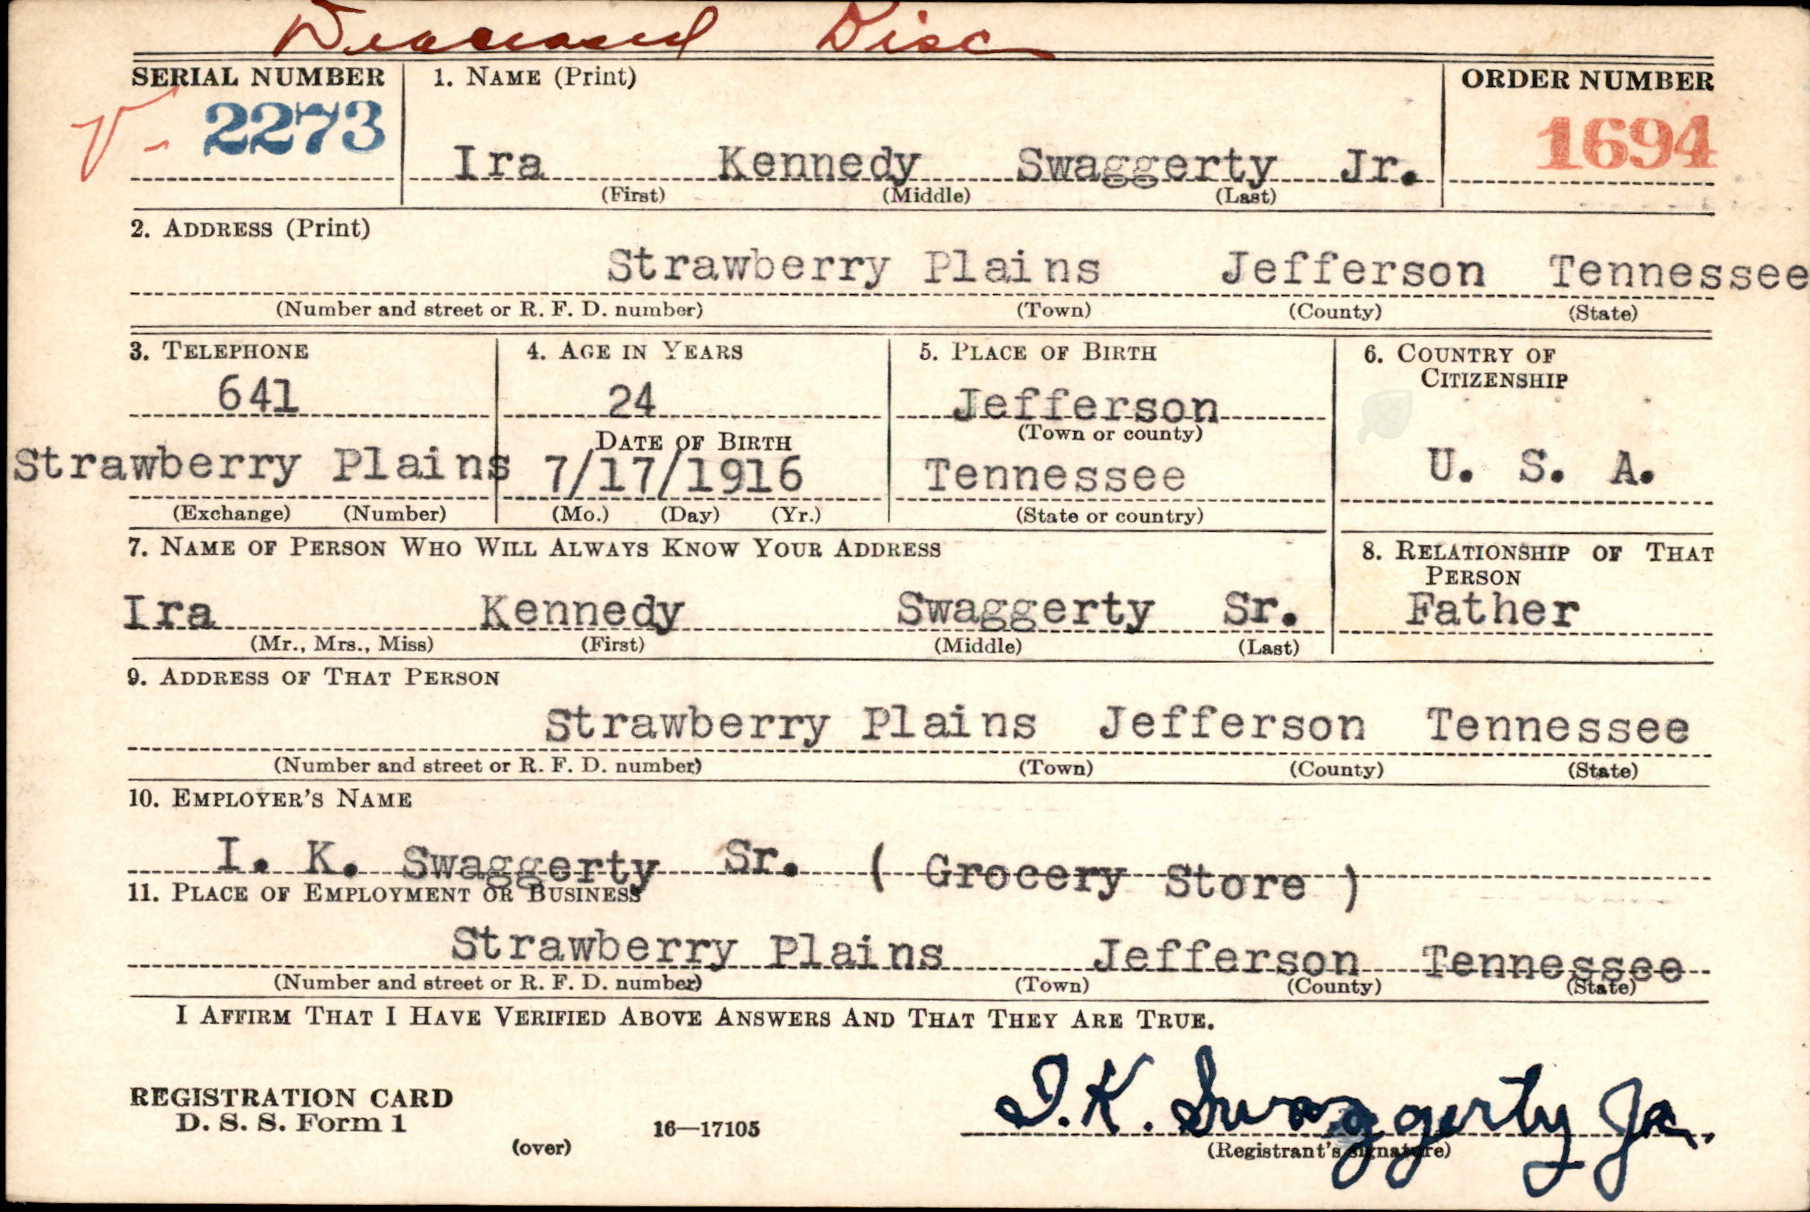 Deceased Disc
SERIAL NUMBER 1. NAME (Print) ORDER NUMBER
V- 2273 Ira Kennedy Swaggerty Jr. 1694
(First) (Middle) (Last)
2. ADDRESS (Print)
Strawberry Plains Jefferson Tennessee
(Number and street or R. F. D. number) (Town) (County) (State)
3. TELEPHONE 4. AGE IN YEARS 5. PLACE OF BIRTH 6. COUNTRY OF
CITIZENSHIP
641 24 Jefferson
DATE OF BIRTH (Town or county)
Strawberry Plains 7/17/1916 Tennessee U. S. A.
(Exchange) (Number) (Mo.) (Day) (Yr.) (State or country)
7. NAME OF PERSON WHO WILL ALWAYS KNOW YOUR ADDRESS 8. RELATIONSHIP OF THAT
PERSON
Ira Kennedy Swaggerty Sr. Father
(Mr., Mrs., Miss) (First) (Middle) (Last)
9. ADDRESS OF THAT PERSON
Strawberry Plains Jefferson Tennessee
(Number and street or R. F. D. number) (Town) (County) (State)
10. EMPLOYER'S NAME
I. K. Swaggerty Sr. ( Grocery Store )
11. PLACE OF EMPLOYMENT OR BUSINESS
Strawberry Plains Jefferson Tennessee
(Number and street or R. F. D. number) (Town) (County) (State)
I AFFIRM THAT I HAVE VERIFIED ABOVE ANSWERS AND THAT THEY ARE TRUE.
REGISTRATION CARD
D. S. S. Form 1 I. K. Swaggerty Jr.
(over) 16—17105 (Registrant's signature)